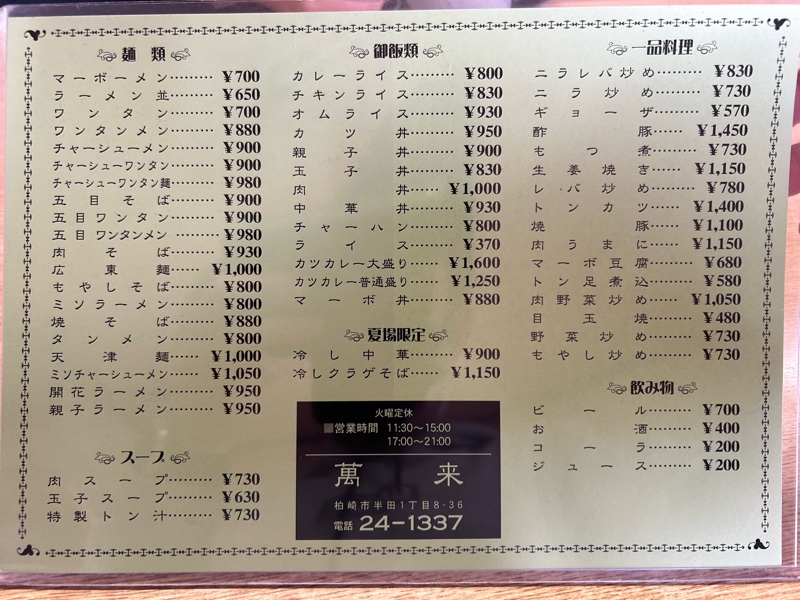 麺類
マーボーメン……… ¥700
ラーメン並……… ¥650
ワンタン……… ¥700
ワンタンメン……… ¥880
チャーシューメン……… ¥900
チャーシューワンタン……… ¥900
チャーシューワンタン麺……… ¥980
五目そば……… ¥900
五目ワンタン……… ¥900
五目ワンタンメン……… ¥980
肉そば……… ¥930
広東麺…… ¥1,000
もやしそば……… ¥800
ミソラーメン……… ¥800
焼そば……… ¥880
タンメン……… ¥800
天津麺…… ¥1,000
ミソチャーシューメン…… ¥1,050
開花ラーメン……… ¥950
親子ラーメン……… ¥950
スープ
肉スープ……… ¥730
玉子スープ……… ¥630
特製トン汁……… ¥730
御飯類
カレーライス……… ¥800
チキンライス……… ¥830
オムライス……… ¥930
カツ丼……… ¥950
親子丼……… ¥900
玉子丼……… ¥830
肉丼…… ¥1,000
中華丼……… ¥930
チャーハン……… ¥800
ライス……… ¥370
カツカレー大盛り…… ¥1,600
カツカレー普通盛り…… ¥1,250
マーボ丼……… ¥880
夏場限定
冷し中華……… ¥900
冷しクラゲそば…… ¥1,150
火曜定休
営業時間 11:30〜15:00
17:00〜21:00
萬来
柏崎市半田1丁目8-36
電話 24-1337
一品料理
ニラレバ炒め……… ¥830
ニラ炒め……… ¥730
ギョーザ……… ¥570
酢豚…… ¥1,450
もつ煮……… ¥730
生姜焼き…… ¥1,150
レバ炒め……… ¥780
トンカツ…… ¥1,400
焼豚…… ¥1,100
肉うまに…… ¥1,150
マーボ豆腐……… ¥680
トン足煮込……… ¥580
肉野菜炒め…… ¥1,050
目玉焼……… ¥480
野菜炒め……… ¥730
もやし炒め……… ¥730
飲み物
ビール……… ¥700
お酒……… ¥400
コーラ……… ¥200
ジュース……… ¥200